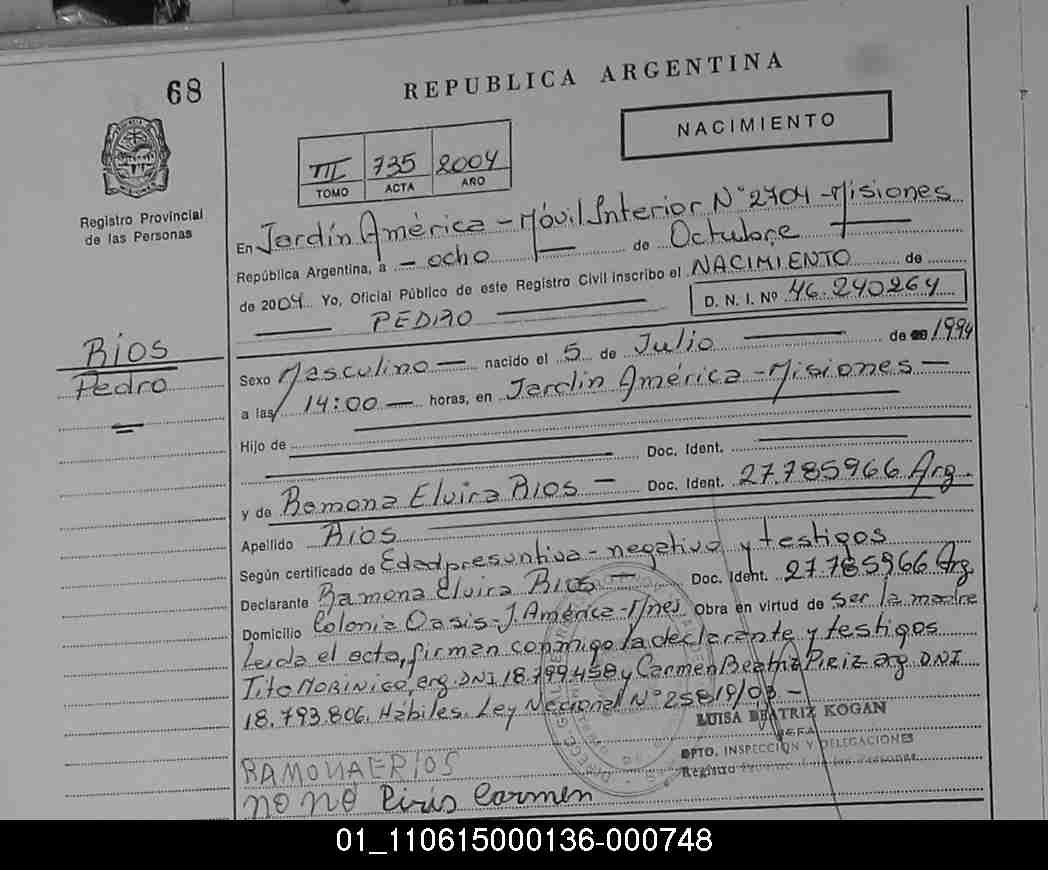 68
REPUBLICA ARGENTINA
NACIMIENTO
III 735 2004
TOMO ACTA AÑO
Registro Provincial
de las Personas
En Jardín América - Móvil Interior N° 2704 - Misiones
República Argentina, a - ocho de Octubre
de 2004 Yo, Oficial Público de este Registro Civil inscribo el NACIMIENTO de
PEDRO D. N. I. Nº 46.240264
RIOS
Pedro
Sexo Masculino - nacido el 5 de Julio de 1994
a las 14:00 - horas, en Jardín América - Misiones -
Hijo de
Doc. Ident.
y de Ramona Elvira RIOS - Doc. Ident. 27.785966 Arg.
Apellido RIOS
Según certificado de Edad presuntiva - negativo y testigos
Declarante Ramona Elvira RIOS - Doc. Ident. 27.785966 Arg
Domicilio Colonia Oasis - J. América - Mnes Obra en virtud de ser la madre
Leida el acta, firman conmigo la declarante y testigos
Tito MORINIGO, arg. DNI 18.799.458 y Carmen Beatriz PIRIZ arg. DNI
18.793.806. Hábiles. Ley Nacional N° 25819/03 -
LUISA BEATRIZ KOGAN
JEFA
DPTO. INSPECCION Y DELEGACIONES
Registro Provincial de las Personas
RAMONA E RIOS
NO NO Piris Carmen
01_110615000136-000748